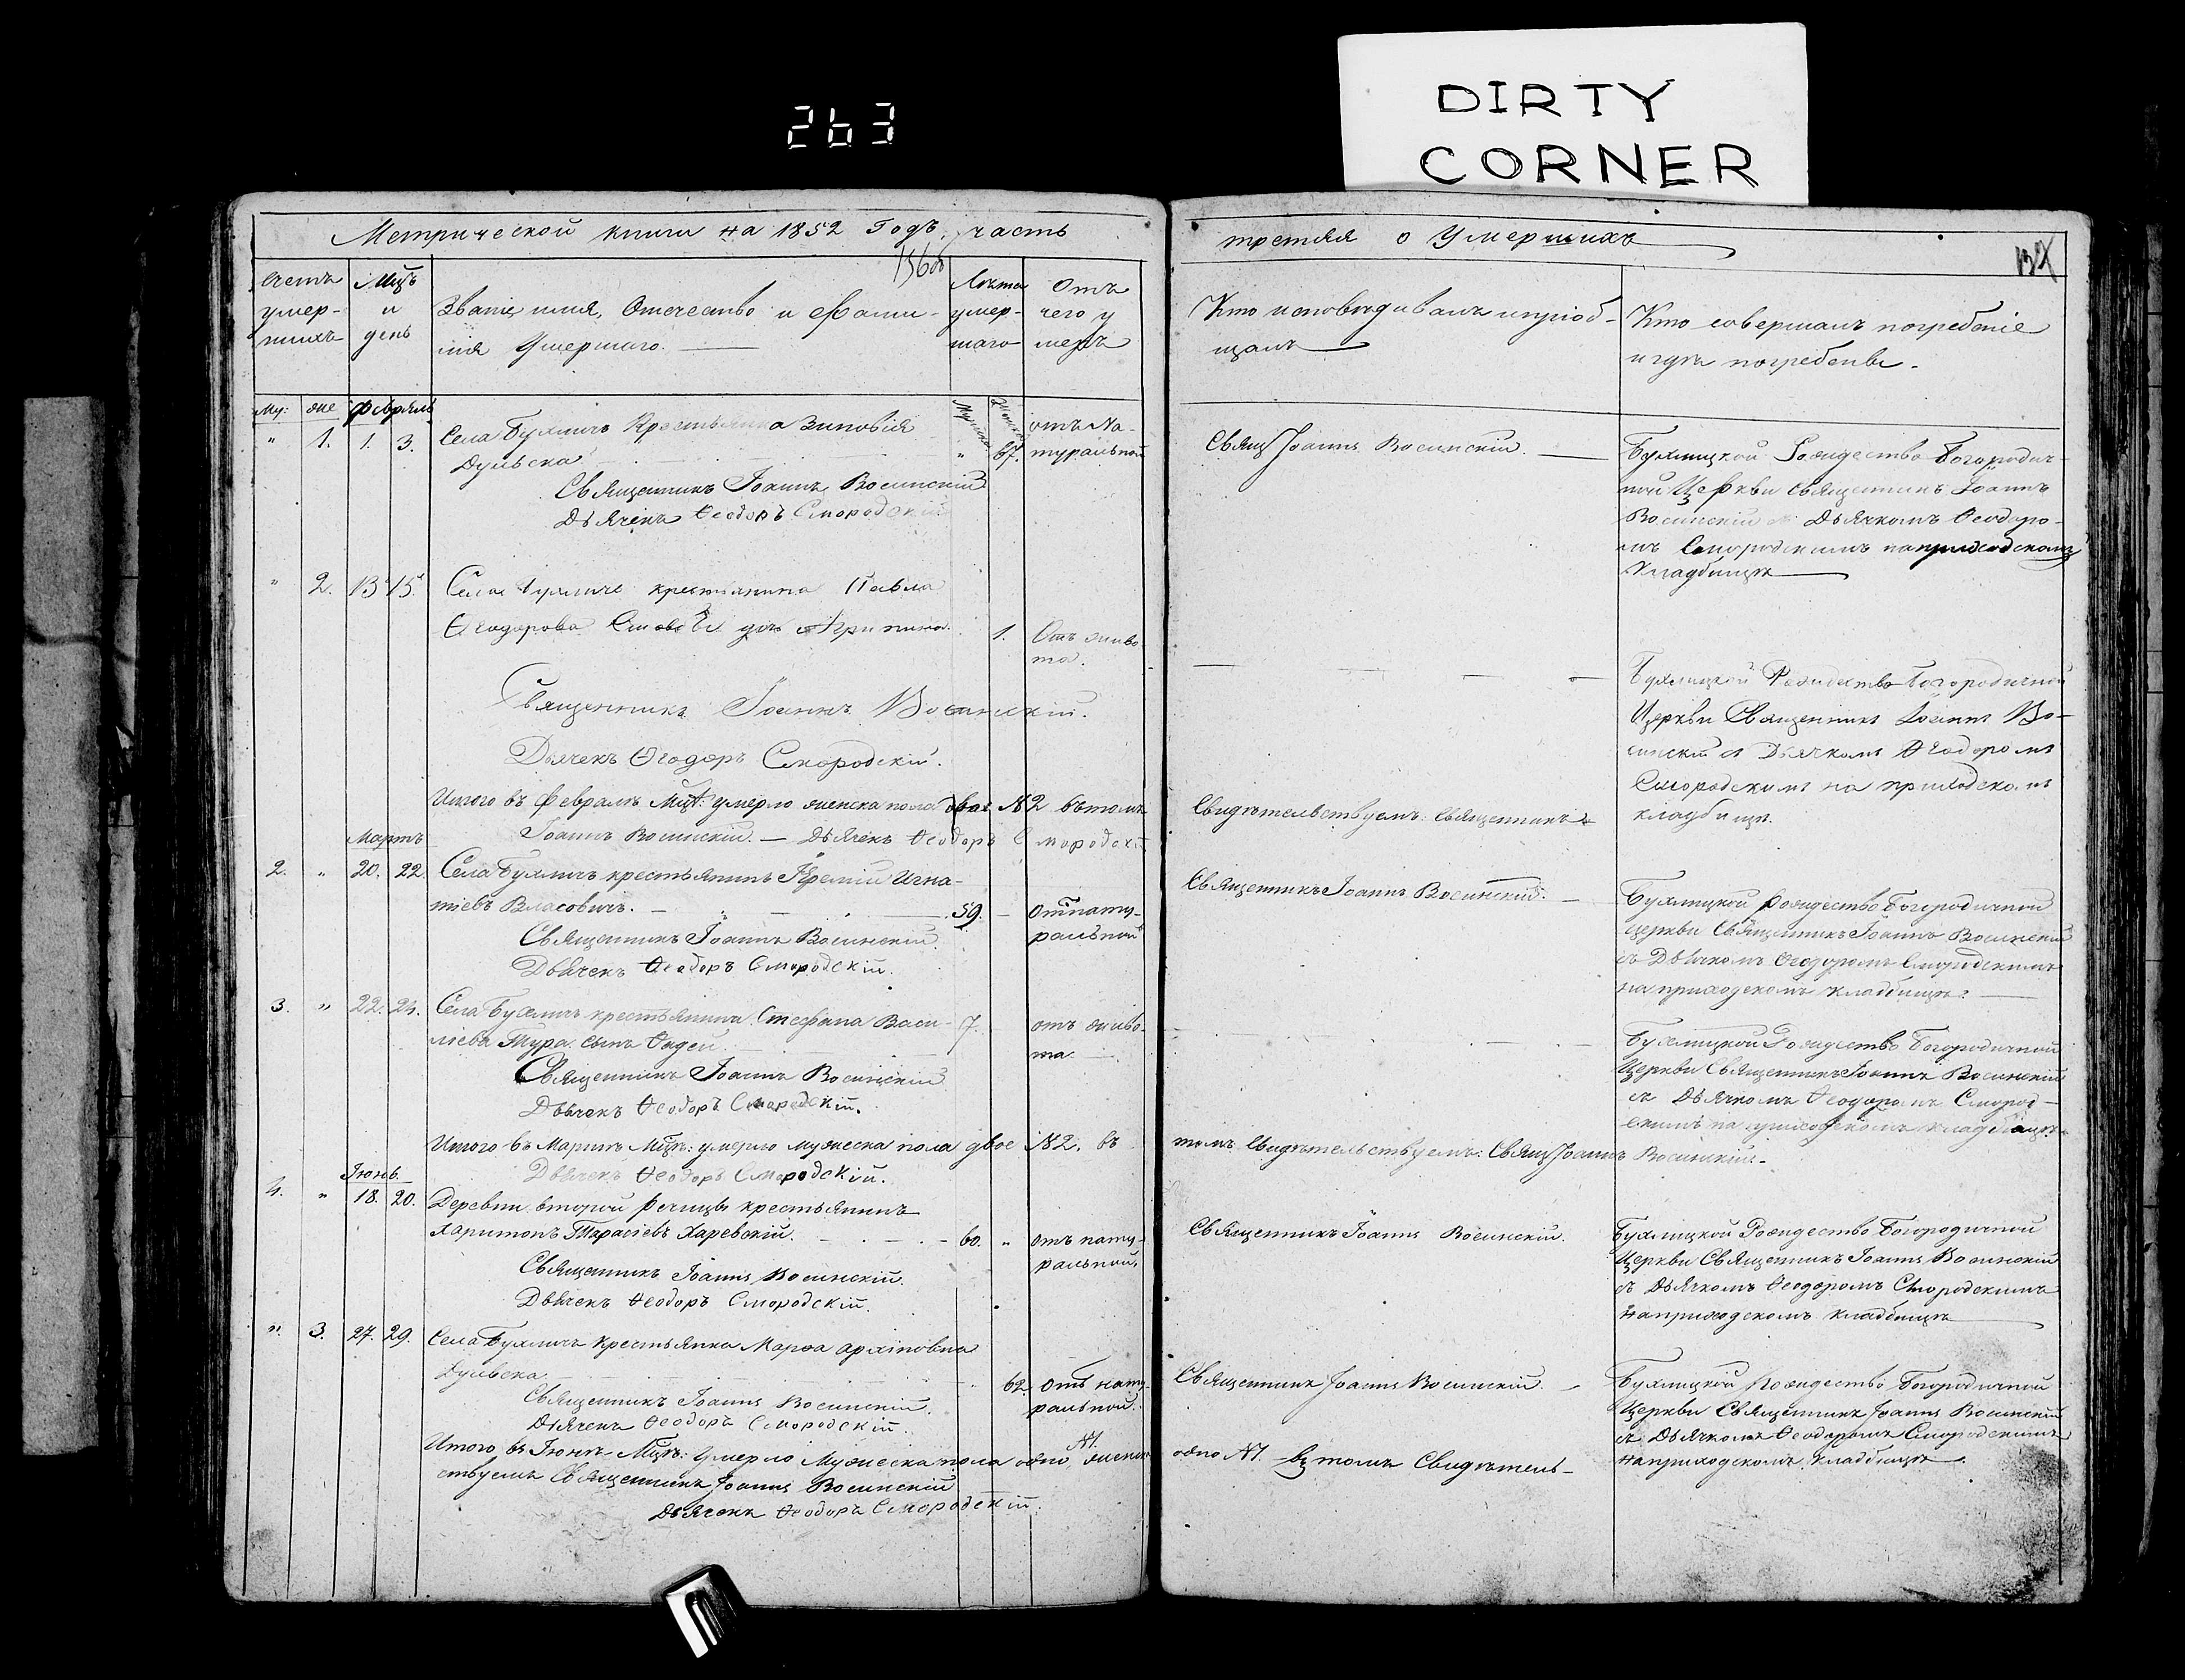 DIRTY
CORNER
263
Метрической книги на 1852 Годъ, часть
третяя о Умершихъ
156об
137
Счетъ умер-шихъ
Мцъ и день
Званіе имя, Отечество и Фами-
лія Умершаго.
Лѣта умер-шаго
Отъ чего умеръ
Кто исповѣдивалъ и пріоб-
щалъ
Кто совершалъ погребеніе
и гдѣ погребены.
Му: же Февраль
" 1. 1. 3. Села Бухличъ Крестьянка Зиновія " 67. отъ На-
Дульска туральной
Священникъ Іоаннъ Восинскій
Дьячекъ Ѳеодоръ Смородскій
Свящ Іоаннъ Восинскій.
Бухлицкой Рождество Богородич-
ной Церкви Священникъ Іоаннъ
Восинскій съ Дьячкомъ Ѳеодоро-
мъ Смородскимъ на приходскомъ
Кладбищѣ
" 2. 13 15 Села Бухличъ крестьянина Павла
Ѳеодорова дочь Агрипина. 1. Отъ живо-
та.
Священникъ Іоаннъ Восинскій.
Дьячекъ Ѳеодоръ Смородскій.
Бухлицкой Рождество Богородичной
Церкви Священникъ Іоаннъ Во-
синскій съ Дьячкомъ Ѳеодоромъ
Смородскимъ на приходскомъ
кладбищѣ.
Итого въ Февралѣ Мцѣ: умерло женска пола двое №2 въ томъ
Свидѣтельствуемъ: Священникъ
Іоаннъ Восинскій. — Дьячекъ Ѳеодоръ Смородскій
Мартъ
2. " 20. 22. Села Бухличъ крестьянинъ Игна-
тіевъ Власовичъ. 59. отъ нату-
ральной
Священникъ Іоаннъ Восинскій.
Дьячекъ Ѳеодоръ Смородскій.
Священникъ Іоаннъ Восинскій.
Бухлицкой Рождество Богородичной
Церкви Священникъ Іоаннъ Восинскій
съ Дьячкомъ Ѳеодоромъ Смородскимъ
на приходскомъ кладбищѣ.
3. " 22. 24. Села Бухличъ крестьянина Стефана Васи- 7. отъ живо-
ліева Тура сынъ Ѳадей та.
Священникъ Іоаннъ Восинскій
Дьячекъ Ѳеодоръ Смородскій.
Бухлицкой Рождество Богородичной
Церкви Священникъ Іоаннъ Восинскій
съ Дьячкомъ Ѳеодоромъ Смород-
скимъ на приходскомъ кладбищѣ
Итого въ Мартѣ Мцѣ: умерло мужеска пола двое №2. въ
томъ Свидѣтельствуемъ: Свящ Іоаннъ Восинскій.
Дьячекъ Ѳеодоръ Смородскій.
Іюнь
4. " 18. 20. Деревни второй Речицы крестьянинъ
Харитонъ Тарасіевъ Харевскій. 60. " отъ нату-
ральной,
Священникъ Іоаннъ Восинскій.
Дьячекъ Ѳеодоръ Смородскій.
Священникъ Іоаннъ Восинскій.
Бухлицкой Рождество Богородичной
Церкви Священникъ Іоаннъ Восинскій
съ Дьячкомъ Ѳеодоромъ Смородскимъ
на приходскомъ кладбищѣ
" 3. 27. 29. Села Бухличъ крестьянка Марѳа архіповна
Дульска 62. отъ нату-
ральной.
Священникъ Іоаннъ Восинскій.
Дьячекъ Ѳеодоръ Смородскій.
Священникъ Іоаннъ Восинскій.
Бухлицкой Рождество Богородичной
Церкви Священникъ Іоаннъ Восинскій
съ Дьячкомъ Ѳеодоромъ Смородскимъ
на приходскомъ кладбищѣ.
Итого въ Іюнѣ Мцѣ: умерло Мужеска пола одно №1. женска
одно №1. Въ томъ Свидѣтель-
ствуемъ Священникъ Іоаннъ Восинскій
Дьячекъ Ѳеодоръ Смородскій.